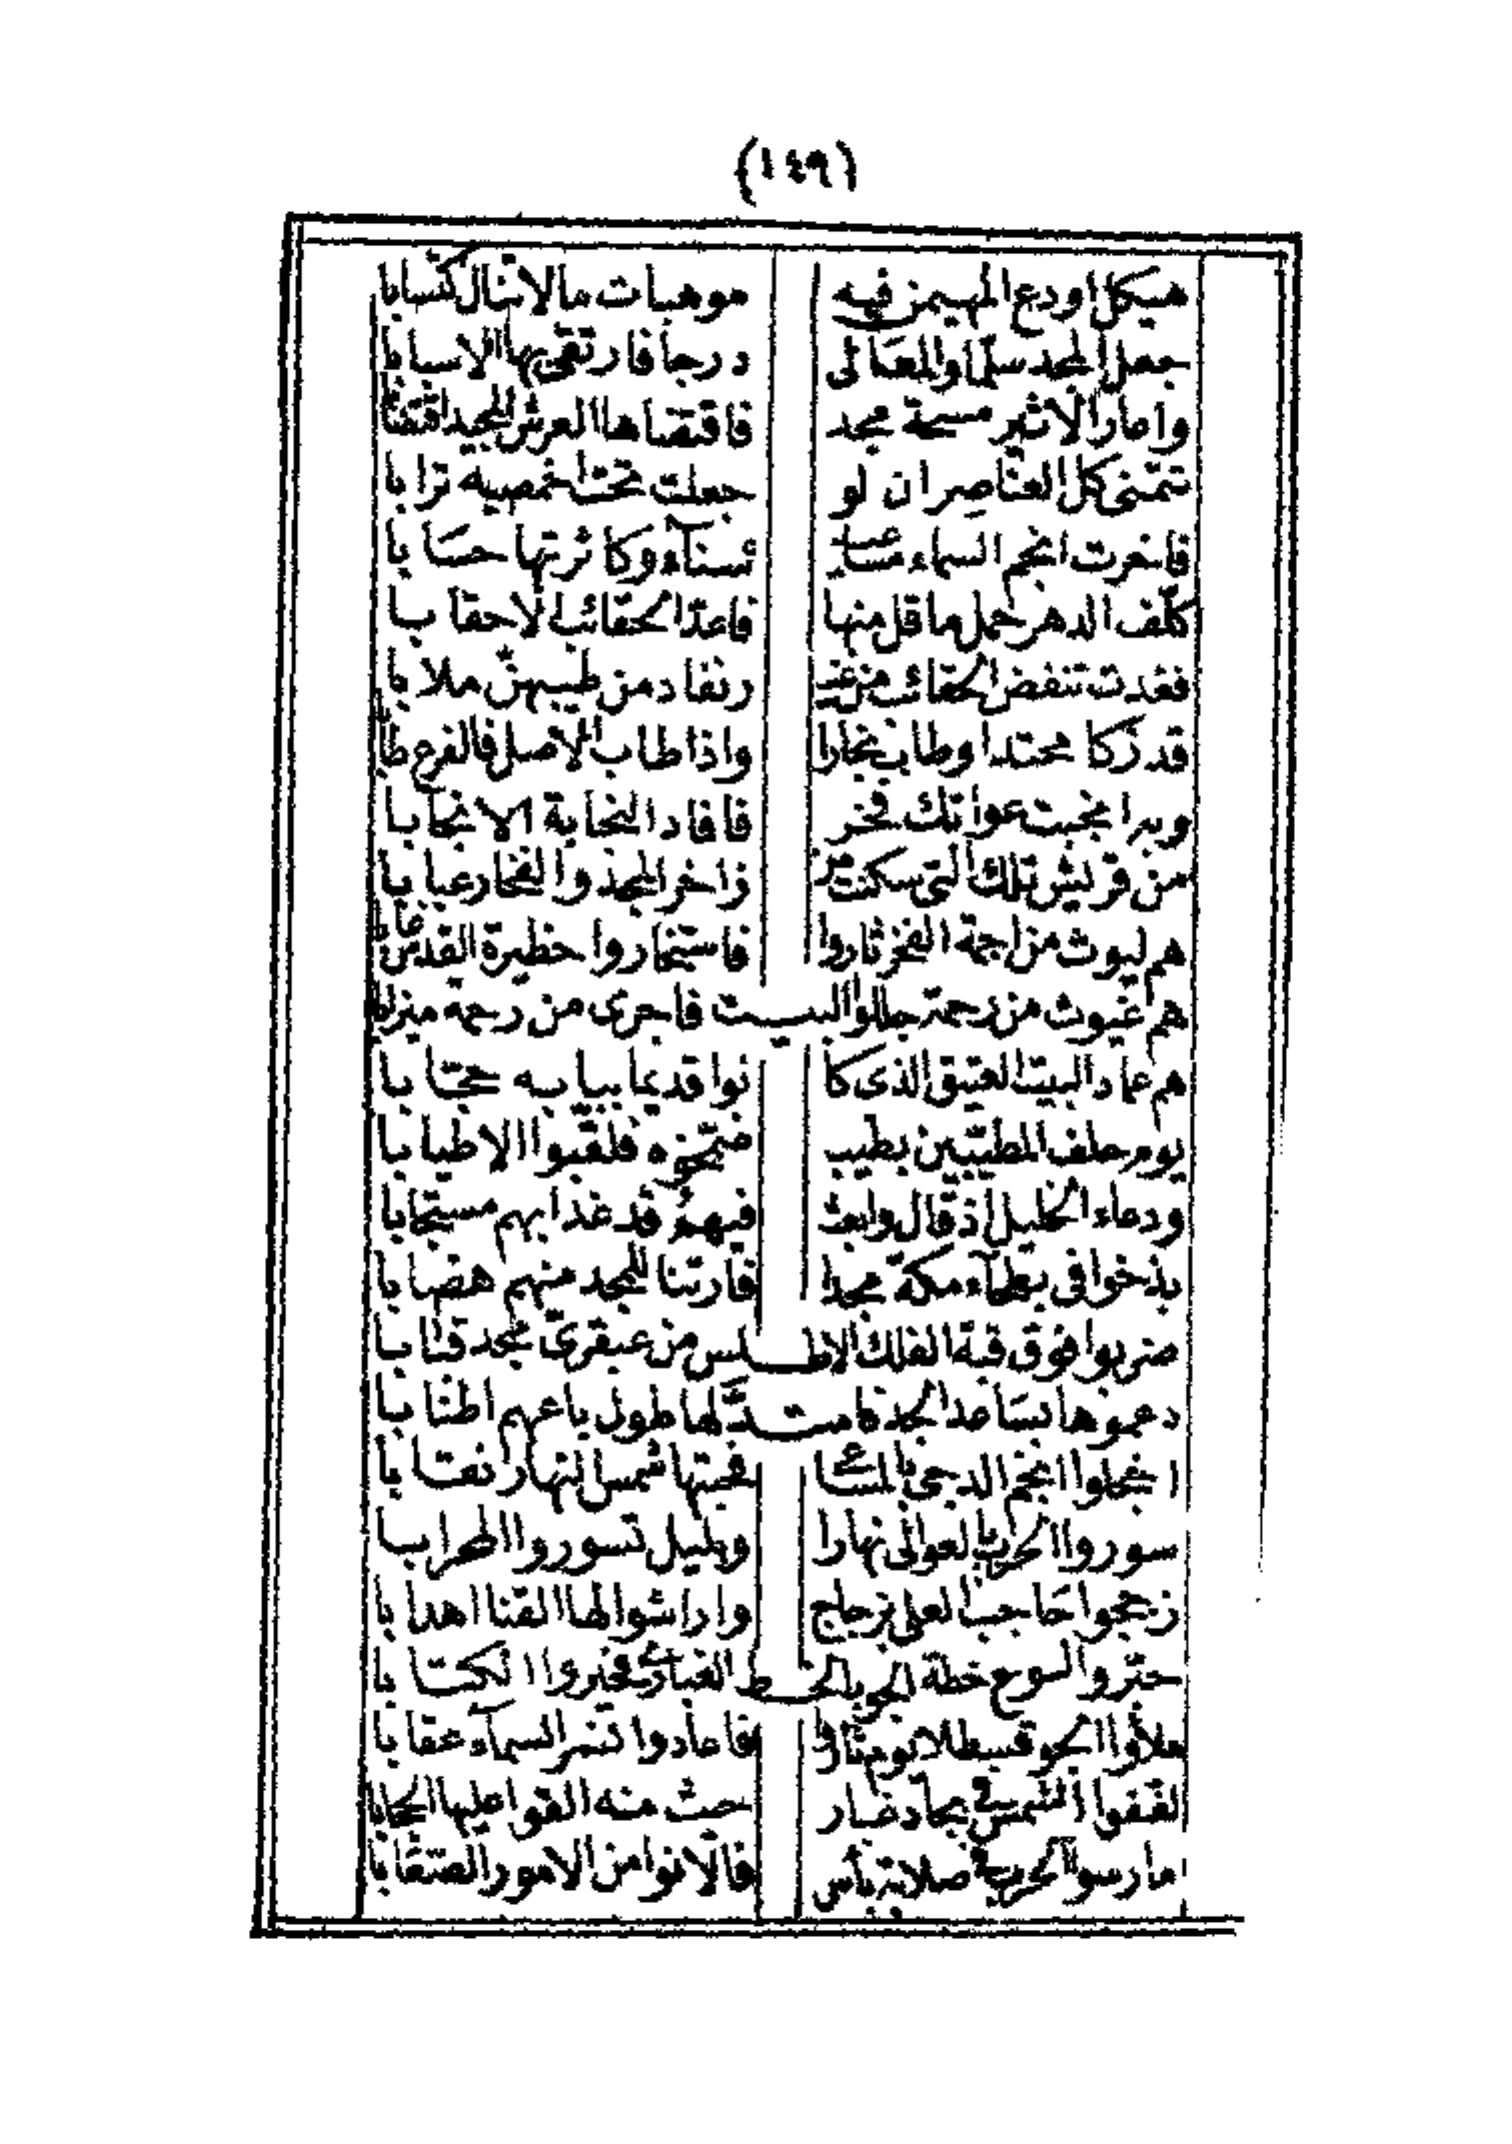 (١٤٩)
هيكل اودع المهيمن فيه موهبات ما لا تنال كتسابا
جعل المجد سلما والمعالى درجا فارتقى بها الاسبابا
واعار الاثير مسحة مجد فاقتضاها العرش المجيد اقتضا
تتمنى كل العناصر ان لو جعلت تحت اخمصيه ترابا
فاخرت انجم السماء مساعيه سنآء وكاثرتها حسابا
كلف الدهر حمل ما قل منها فاعدّ الحقائب الاحقابا
فغدت تنفض الحقائب من عنبر نفاد من طيبهنّ ملابا
قد زكا محتدا وطاب نجارا واذا طاب الاصل فالفرع طابا
وبه انجبت عواتك فخر فافاد النجابة الانجابا
من قريش تلك التى سكنت من زاخر المجد والفخار عبابا
هم ليوث من اجمة الفخر ثاروا فاستخاروا حظيرة القدس غابا
هم غيوث من رحمة جللوا البيت فاجرى من رحمة ميزابا
هم عماد البيت العتيق الذى كا نوا قديما ببابه حجّابا
يوم حلف المطيّبين بطيب ضمّخوه فلقّبوا الاطيابا
ودعاء الخليل اذ قال وابعث فيهم قد غذا بهم مستجابا
بذخوا فى بطحآء مكة مجدا فارتنا للمجد منهم هضابا
ضربوا فوق قبة الفلك الاطلس من عبقريّ مجد قبابا
دعموها بساعد الجد فامتدّ لها طول باعهم اطنابا
اخجلوا انجم الدجى بالمساعى فحبتها شمس النهار نقابا
سوروا الحرب بالعوالى نهارا وبليل تسوروا المحرابا
زججوا حاجب العلى بزجاج واراشوا لها القنا اهدابا
حبّروا لوع خطة الجو بالخط الغبارى فخبروا الكتابا
ملأوا الجو قسطلا يوم ثاروا فاعادوا نسر السمآء عقابا
لففوا الشمس فى بجاد غبار حيث منه القوا عليها الحجابا
مارسوا الحرب فى صلابة بأس فالانوا من الامور الصعابا